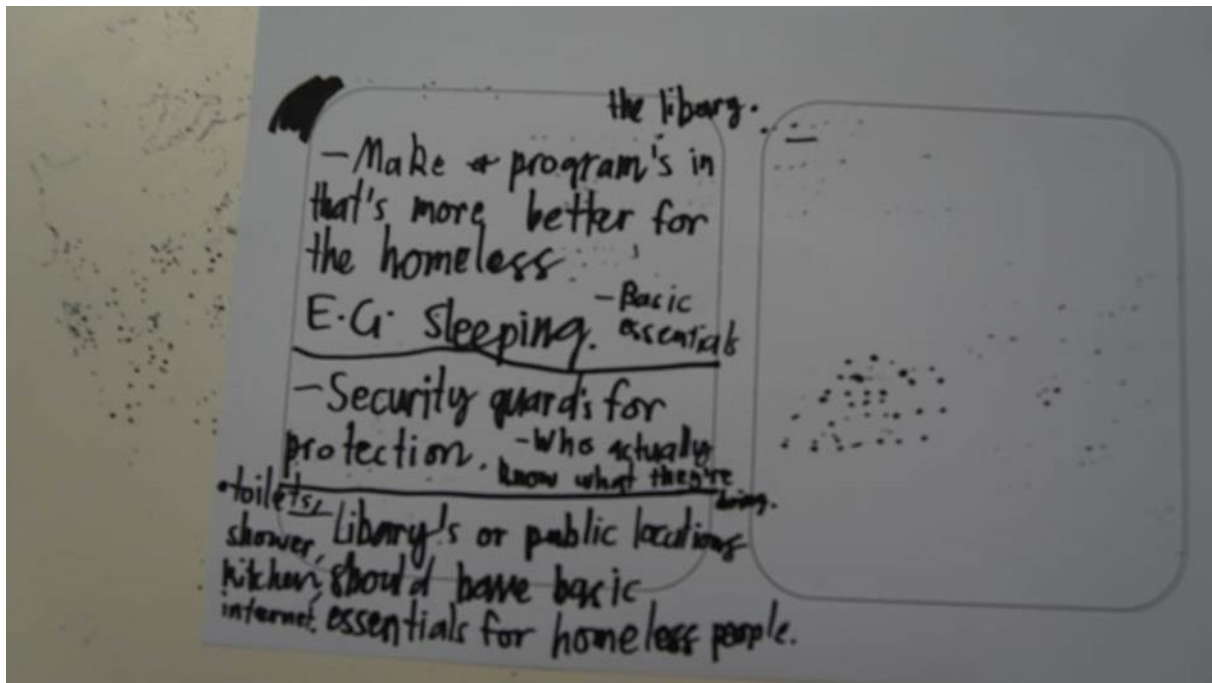 the libarg.
- Make program's in
that's more better for
the homeless
E.G. Sleeping.
- Basic
essentials
- Security guard's for
protection.
- Who actually
know what they're
doing.
• toilets,
shower,
kitchen,
internet.
Libary's or public locations
should have basic
essentials for homeless people.